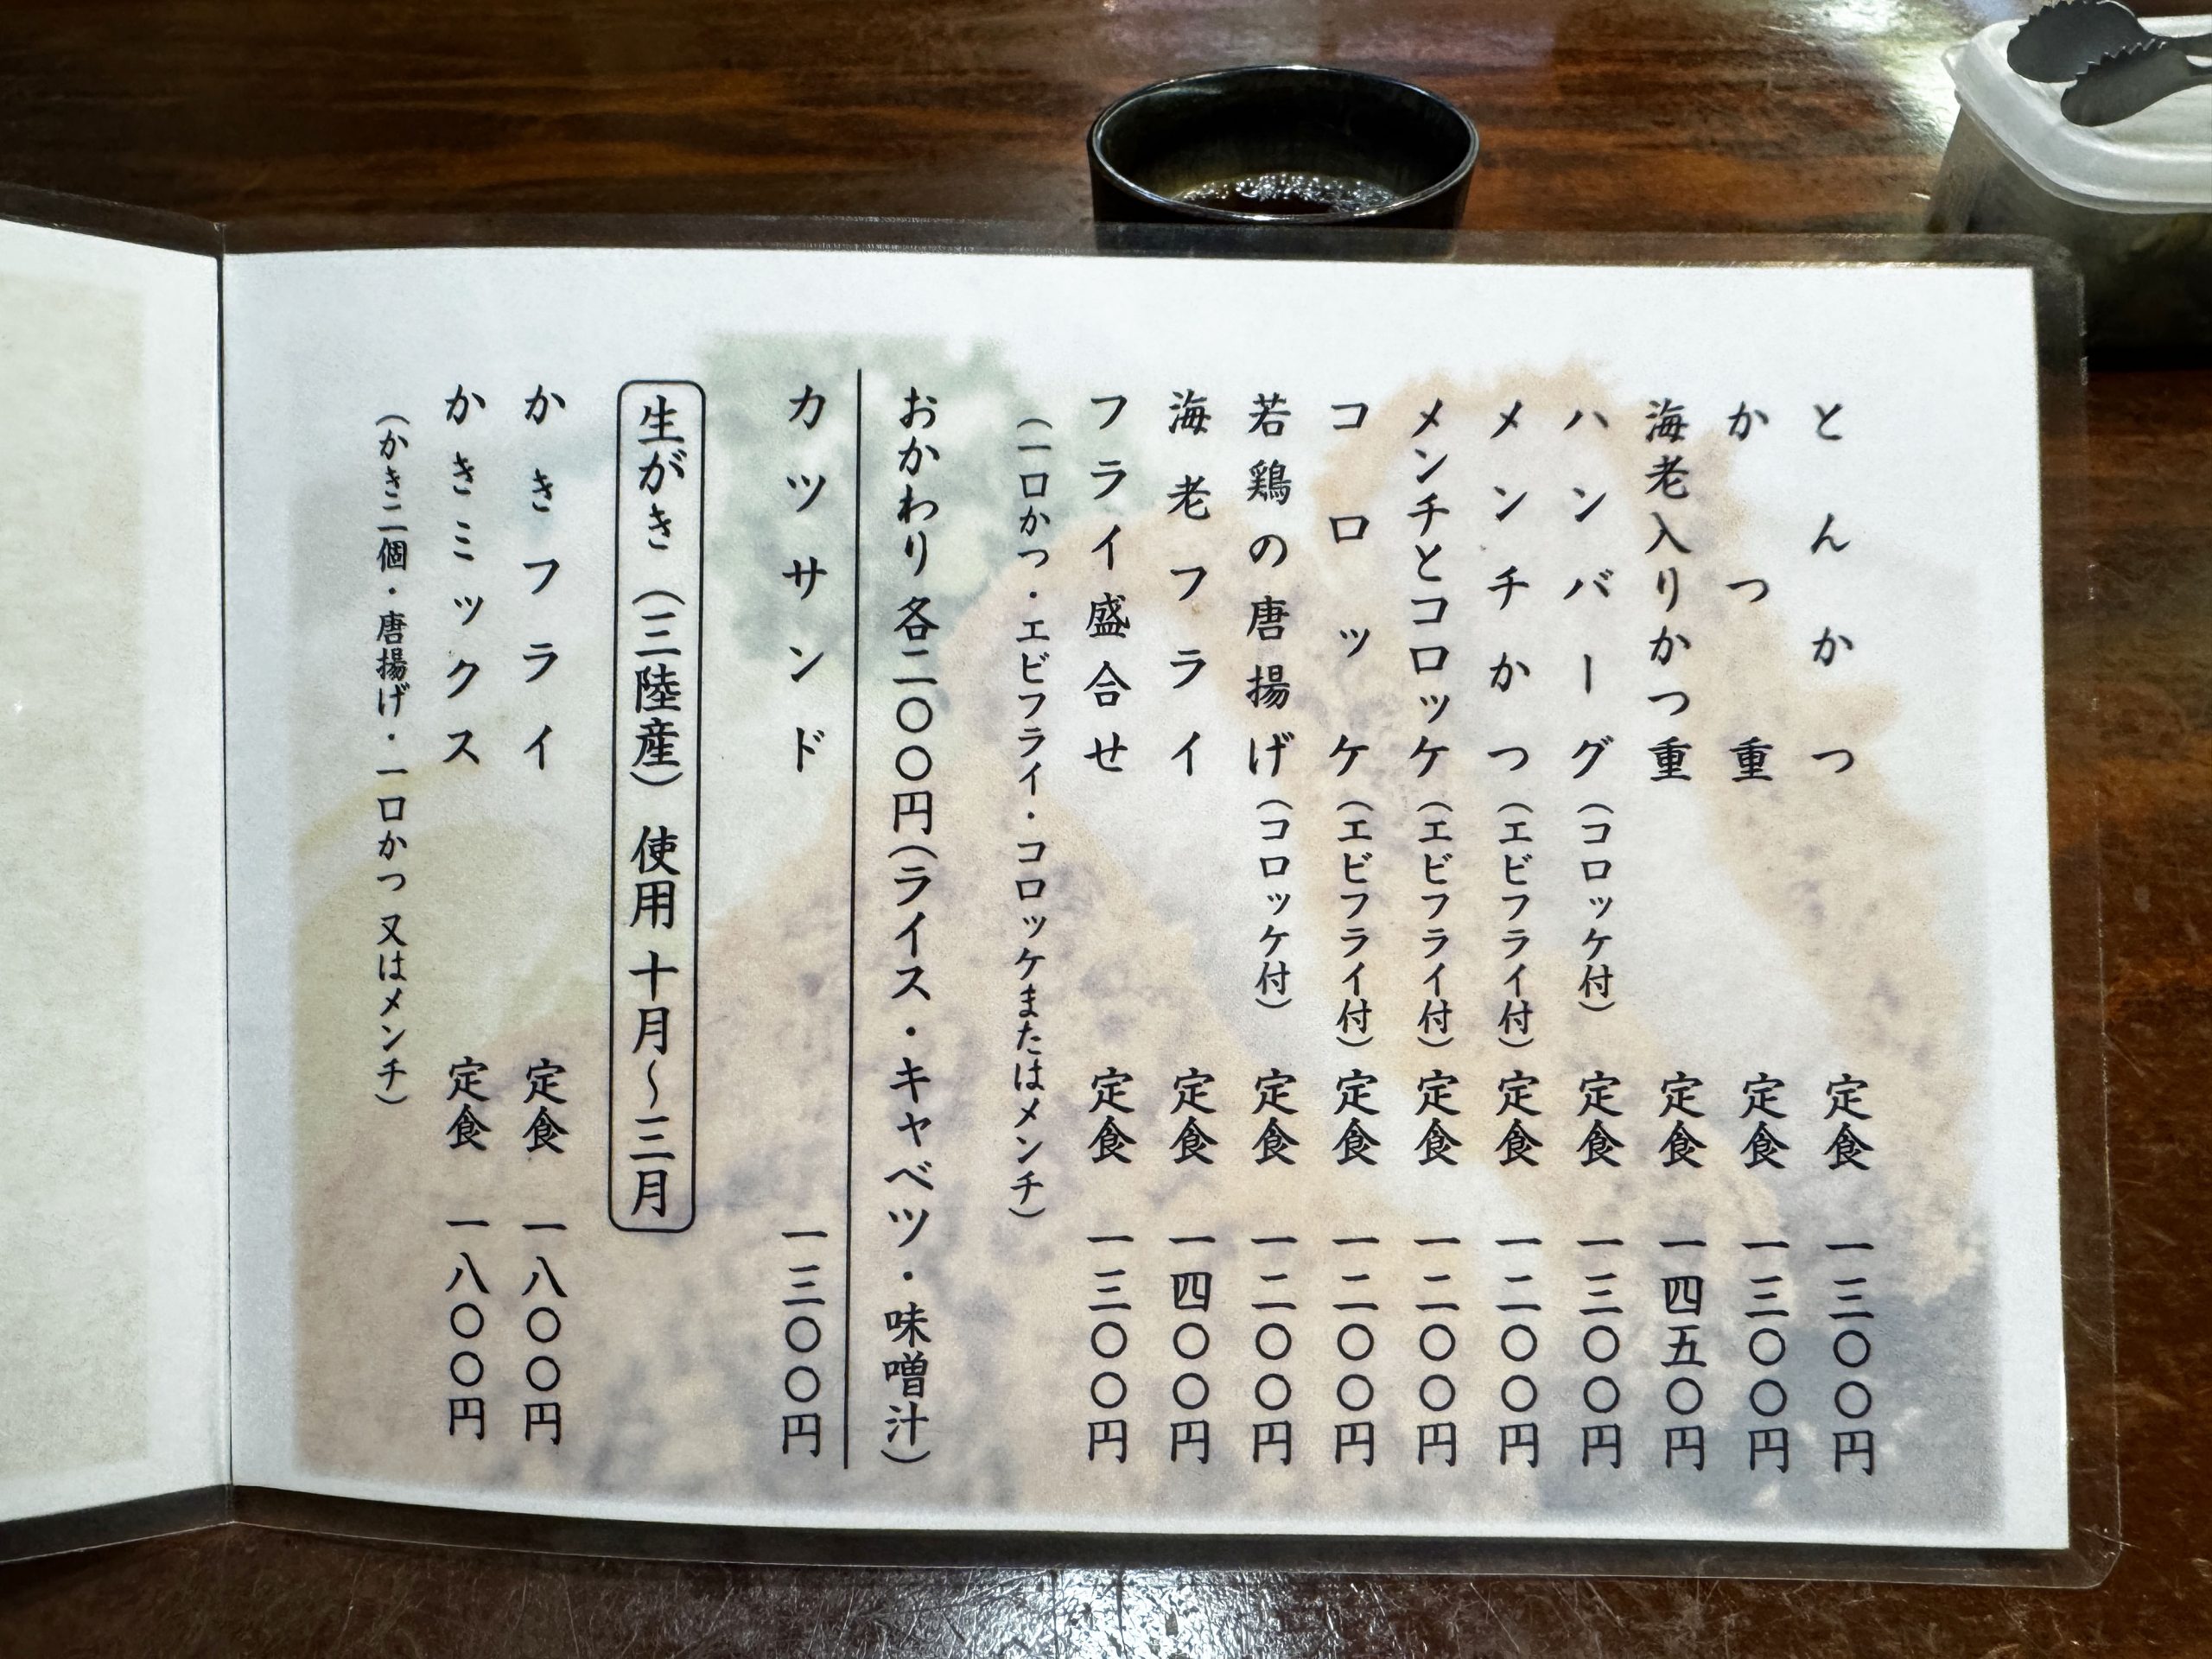 とんかつ 定食 一三〇〇円
かつ重 定食 一三〇〇円
海老入りかつ重 定食 一四五〇円
ハンバーグ（コロッケ付） 定食 一三〇〇円
メンチかつ（エビフライ付） 定食 一二〇〇円
メンチとコロッケ（エビフライ付） 定食 一二〇〇円
コロッケ（エビフライ付） 定食 一二〇〇円
若鶏の唐揚げ（コロッケ付） 定食 一二〇〇円
海老フライ 定食 一四〇〇円
フライ盛合せ 定食 一三〇〇円
（一口かつ・エビフライ・コロッケまたはメンチ）
おかわり 各二〇〇円（ライス・キャベツ・味噌汁）
カツサンド 一三〇〇円
生がき（三陸産） 使用 十月～三月
かきフライ 定食 一八〇〇円
かきミックス 定食 一八〇〇円
（かき二個・唐揚げ・一口かつ 又はメンチ）